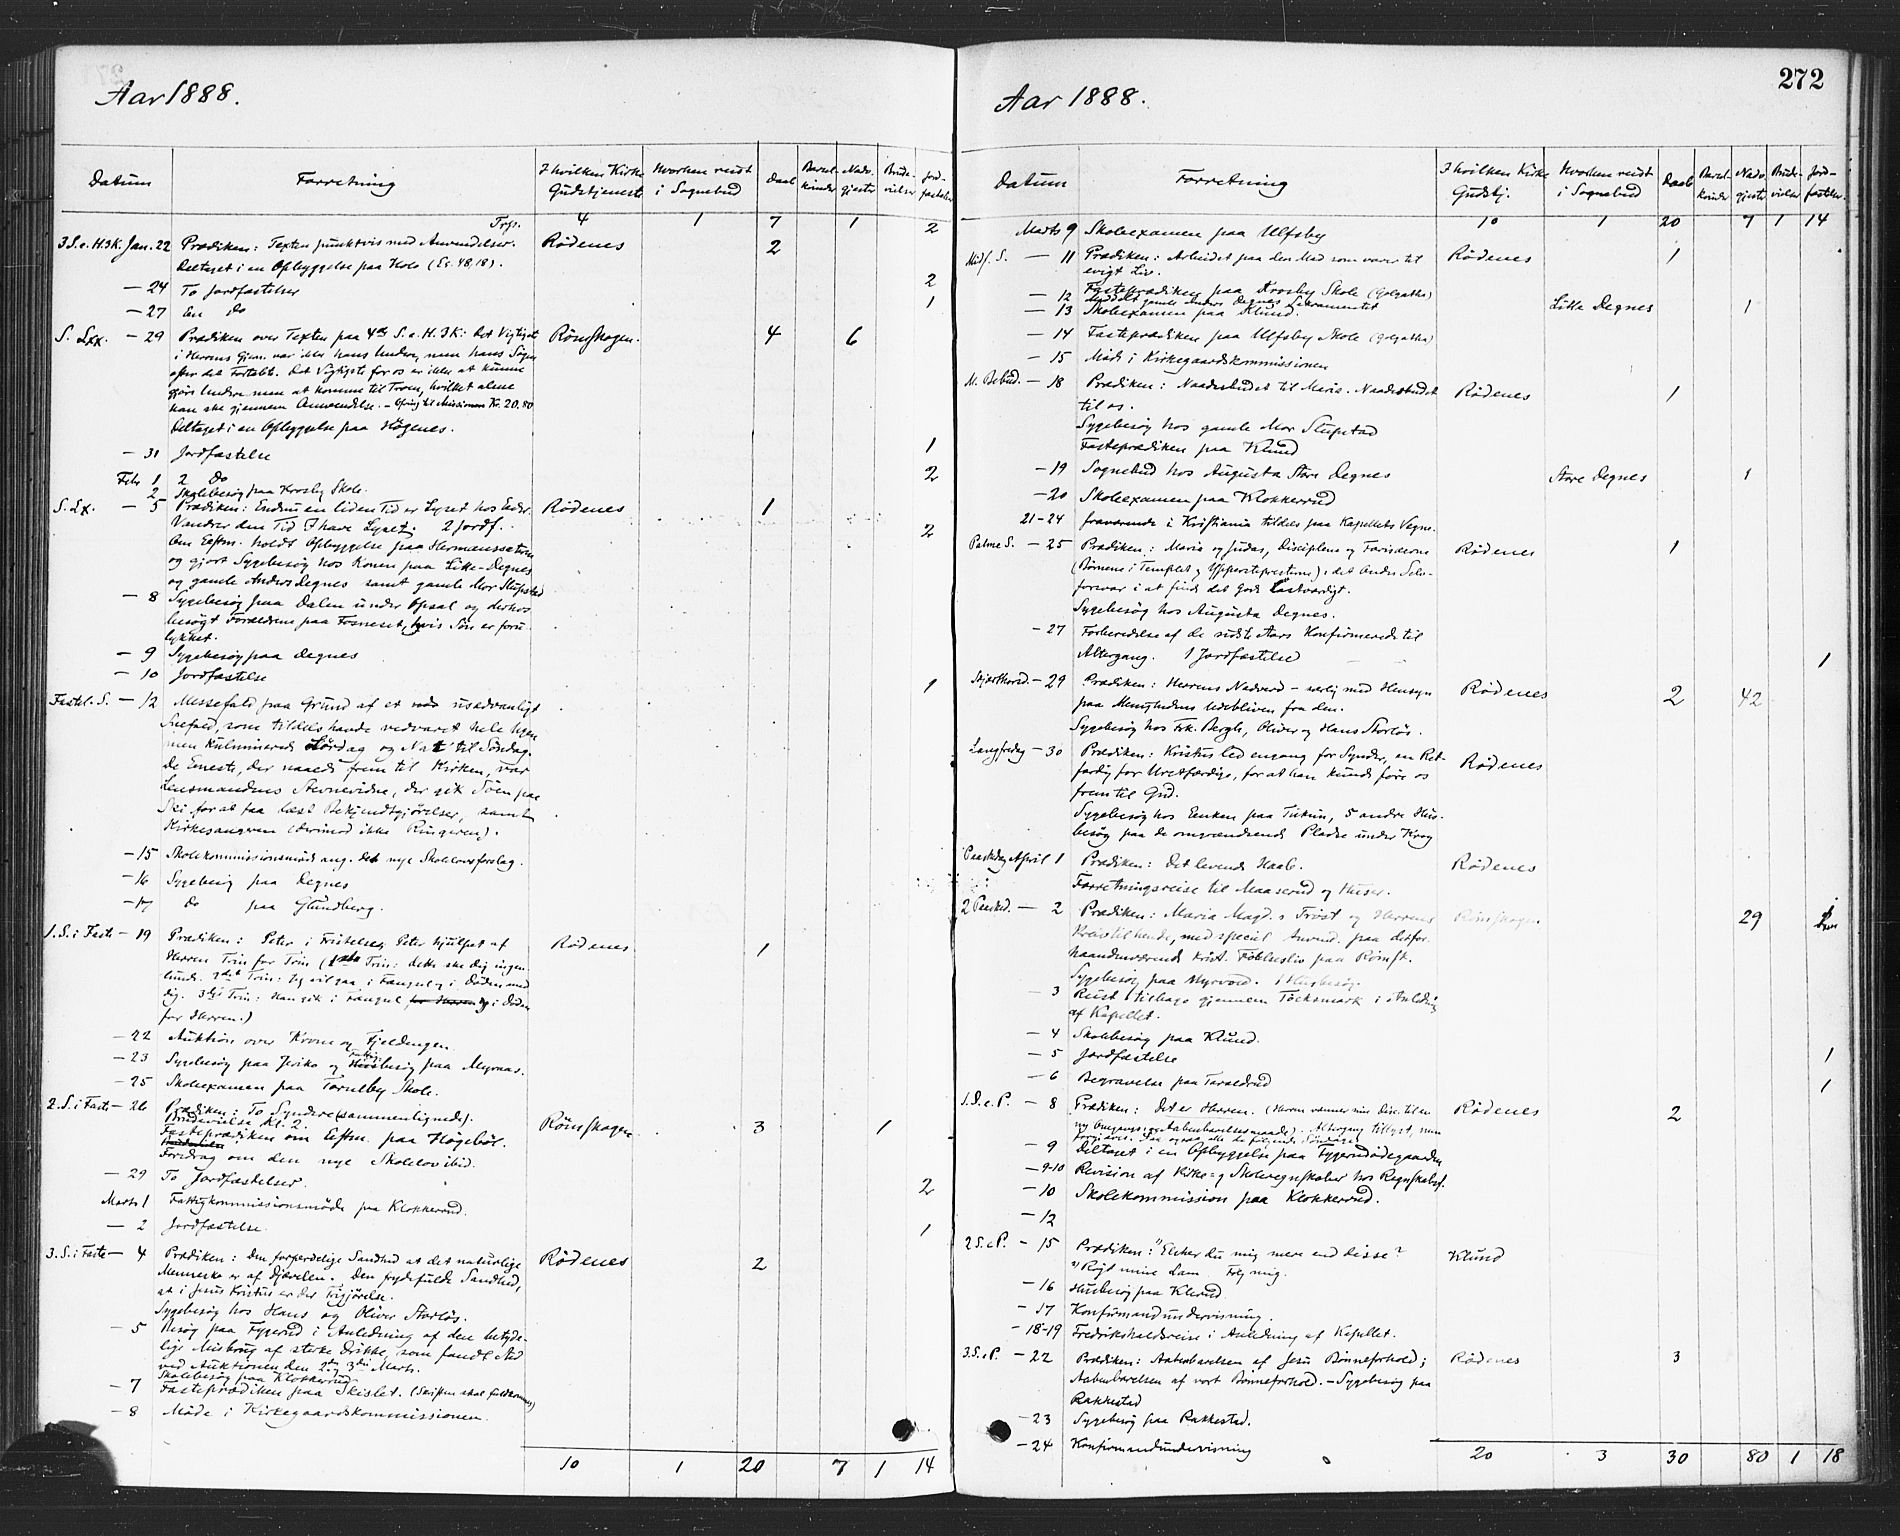 Aar 1888.
Datum Forretning I hvilken Kirke Gudstjeneste Hvorhen reist i Sognebud Daab Barselkvinder Nadv.gjester Brudevielser Jordfæstelser
Trsp. 4 1 7 1 2
3 S. e. H. 3 K. Jan. 22 Prædiken: Texten punktvis med Anvendelser. Rødenes 2
Deltaget i en Opbyggelse paa Kolo (Es. 48,18).
— 24 To Jordfæstelser 2
— 27 En Do 1
S. Lxx. — 29 Prædiken over Texten paa 4de S. e. H. 3 K: Det Vigtigste Rømskogen. 4 6
i Herrens Gjern. var ikke hans Undre, men hans Sagn
efter det Fortalte. Det Vigtigste for os er ikke at kunne
gjøre Undere men at komme til Troen, hvilket alene
kan ske gjennem Anvendelse. – Ofring til Missionen Kr. 20.80
Deltaget i en Opbyggelse paa Høgenes.
— 31 Jordfæstelse 1
Febr 1 2 Do 2
2 Skolebesøg paa Krosby Skole.
S. Lx. — 5 Prædiken: Endnu en liden Tid er Lyset hos Eder. Rødenes 1
Vandrer den Tid I have Lyset. 2 Jordf. 2
Om Eftm. holdt Opbyggelse paa Hermanssætren
og gjort Sygebesøg hos Konen paa Lille-Degnes
og gamle Anders Degnes samt gamle Mor Slupstad
— 8 Sygebesøg paa Dalen under Opsal og derhos
besøgt Forældrene paa Fosneset, hvis Søn er foru-
lykket.
— 9 Sygebesøg paa Degnes
— 10 Jordfæstelse 1
Fastel. S. — 12 Messefald paa Grund af et usædvanligt
Snefald, som tildels havde vedvaret hele Ugen
men kulminerede Lørdag og Nat til Søndag.
De Eneste, der naaede frem til Kirken, var
Lensmandens Stevnevidne, der gik Søen paa
Ski for at faa læst Bekjendtgjørelser, samt
Kirkesangeren (derimod ikke Ringeren).
— 15 Skolekommissionsmøde ang. det nye Skolelovsforslag.
— 16 Sygebesøg paa Degnes
— 17 Do paa Glundberg.
1. S. i Faste — 19 Prædiken: Peter i Fristelse, Peter hjulpet af Rødenes 1
Herren Trin for Trin (1ste Trin: dette ske dig ingen-
lunde. 2det Trin: Jeg vil gaa i Fængsel og i Døden med
dig. 3die Trin: Han gik i Fængsel og i Døden
for Herren.)
— 22 Auktion over Krone og Fjeldengen.
— 23 Sygebesøg paa Jeriko og Fattigbesøg paa Myrnæs.
— 25 Skoleexamen paa Torulby Skole.
2. S. i Faste — 26 Prædiken: To Syndere (sammenlignede). Rømskogen 3 1
Brudevielse Kl. 2.
Fasteprædiken om Eftm. paa Høgebøl.
Foredrag om den nye Skolelov ibid.
— 29 To Jordfæstelser. 2
Marts 1 Fattigkommissionsmøde paa Klokkerud.
— 2 Jordfæstelse. 1
3. S. i Faste — 4 Prædiken: Den forfærdelige Sandhed at det naturlige Rødenes 2
Menneske er af Djævelen. Den frydefulde Sandhed,
at i Jesus Kristus er der Frigjørelse.
Sygebesøg hos Hans og Oliver Storløs.
— 5 Besøg paa Fygerud i Anledning af den betyde-
lige Misbrug af stærke Drikke, som fandt Sted
ved Auktionen den 2den og 3die Marts.
Skolebesøg paa Klokkerud
— 7 Fasteprædiken paa Skislet. (Skriften skal fuldkommes)
— 8 Møde i Kirkegaardskommissionen.
10 1 20 7 1 14
272
Aar 1888.
Datum Forretning I hvilken Kirke Gudstj. Hvorhen reist i Sognebud Daab Barselkvinder Nadv.gjester Brudevielser Jordfæstelser
10 1 20 7 1 14
Marts 9 Skoleexamen paa Ulfsby
Midf. S. — 11 Prædiken: Arbeidet paa den Mad som varer til Rødenes 1
evigt Liv.
— 12 Fasteprædiken paa Krosby Skole (Golgatha)
Meddelt gamle Anders Degnes Sakramentet Lille Degnes 1
— 13 Skoleexamen paa Klund.
— 14 Fasteprædiken paa Ulfsby Skole (Golgatha)
— 15 Møde i Kirkegaardskommissionen
M. Bebud. — 18 Prædiken: Naadesbudet til Maria. Naadesbudet Rødenes 1
til os.
Sygebesøg hos gamle Mor Slupstad
Fasteprædiken paa Klund
— 19 Sognebud hos Augusta Store Degnes Store Degnes 1
— 20 Skoleexamen paa Klokkerud
21–24 fraværende i Kristiania tildels paa Kapellets Vegne.
Palme S. — 25 Prædiken: Maria og Judas, Disciplene og Farisæerne Rødenes 1
(Børnene i Templet og Ypperstepresterne): det Andet Selv-
forsvar i at finde det Gode Lastværdigt.
Sygebesøg hos Augusta Degnes.
— 27 Forberedelse af de sidste Aars Konfirmerede til
Altergang. 1 Jordfæstelse 1
Skjærthorsd. — 29 Prædiken: Herrens Nadverd – særlig med Hensyn Rødenes 2 42
paa Menighedens Udebliven fra den.
Sygebesøg hos Frk. Bergh, Oliver og Hans Storløs.
Langfredag — 30 Prædiken: Kristus led engang for Synder, en Ret- Rødenes
færdig for Uretfærdige, for at han kunde føre os
frem til Gud.
Sygebesøg hos Enken paa Tukun, 5 andre Hus-
besøg paa de omgrændsende Pladse under Krog
Paaskedag April 1 Prædiken: Det levende Haab. Rødenes
Forretningsreise til Maaserud og Huser.
2 Paasked. — 2 Prædiken: Maria Magd.s Trøst og Herrens Rømskogen. 29 1
Krav til hende, med special Anvend. paa det for-
haandenværende krist. Folkeliv paa Rømsk.
Sygebesøg paa Myrvold. 1 Husbesøg.
— 3 Reist tilbage gjennem Tocksmark i Anledning
af Kapellet.
— 4 Skolebesøg paa Klund.
— 5 Jordfæstelse 1
— 6 Begravelse paa Taraldrud 1
1. S. e. P. — 8 Prædiken: Det er Herren. (Herren vænner sine Disc. til en Rødenes 2
ny Omgangs- og Aabenbarelsesmaade). Altergang tillyst, men
— 9 Deltaget i en Opbyggelse paa Fygerudødegaarden
— 9–10 Revision af Kirke- og Skoleregnskaber hos Regnskabsf.
— 10 Skolekommission paa Klokkerud.
— 12
2 S. e. P. — 15 Prædiken: 1) Elsker du mig mere end disse? Klund
2) Røgt mine Lam Følg mig.
— 16 Husbesøg paa Klund
— 17 Konfirmandundervisning.
— 18–19 Fredrikshaldsreise i Anledning af Kapellet.
3. S. e. P. — 22 Prædiken: Aabenbarelsen af Jesu Bønneforhold; Rødenes 3
Aabenbarelsen af vort Bønneforhold. – Sygebesøg paa
Rakkestad
— 23 Sygebesøg paa Rakkestad.
— 24 Konfirmandundervisning
20 3 30 80 1 18